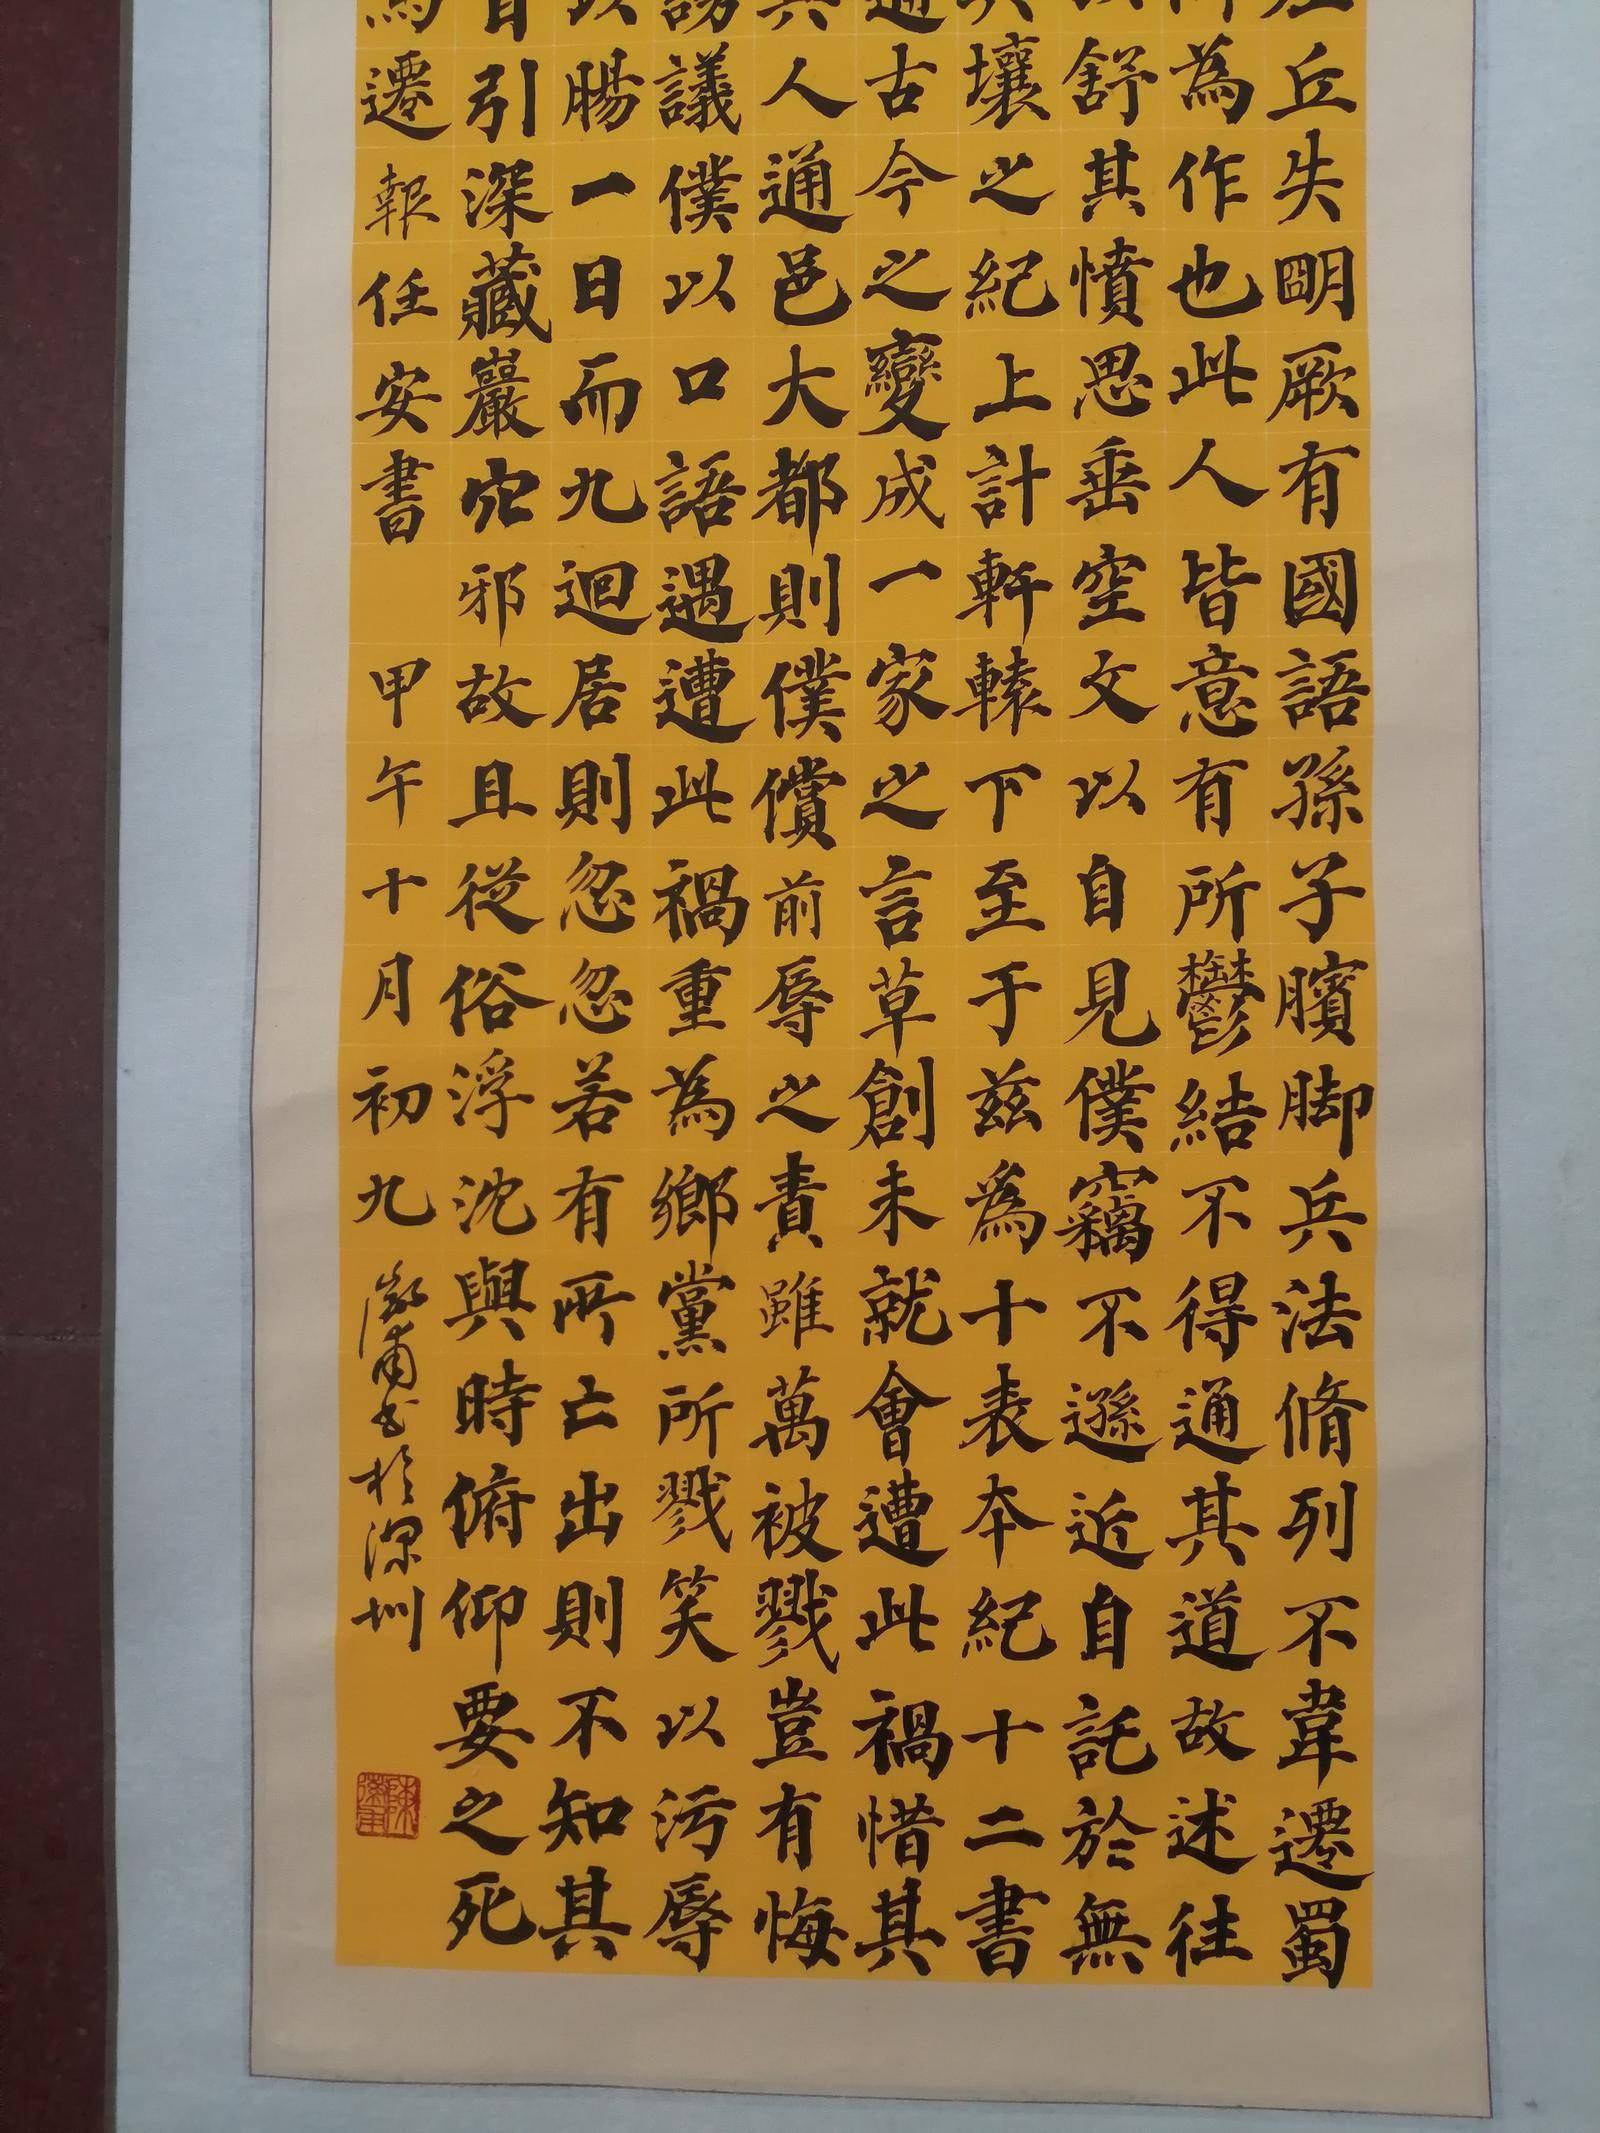 丘失明厥有國語孫子臏脚兵法脩列不韋遷蜀
為作也此人皆意有所鬱結不得通其道故述往
舒其憤思垂空文以自見僕竊不遜近自託於無
壤之紀上計軒轅下至于茲為十表本紀十二書
古今之變成一家之言草創未就會遭此禍惜其
人通邑大都則僕償前辱之責雖萬被戮豈有悔
議僕以口語遇遭此禍重為鄉黨所戮笑以污辱
以腸一日而九迴居則忽忽若有所亡出則不知其
自引深藏巖穴邪故且從俗浮沈與時俯仰要之死
馬遷報任安書 甲午十月初九 書於深圳